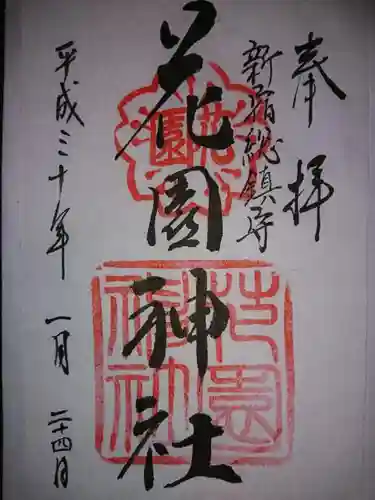 奉拝
新宿総鎮守
花園
花園神社
花園神社
平成三十年 一月 二十四日